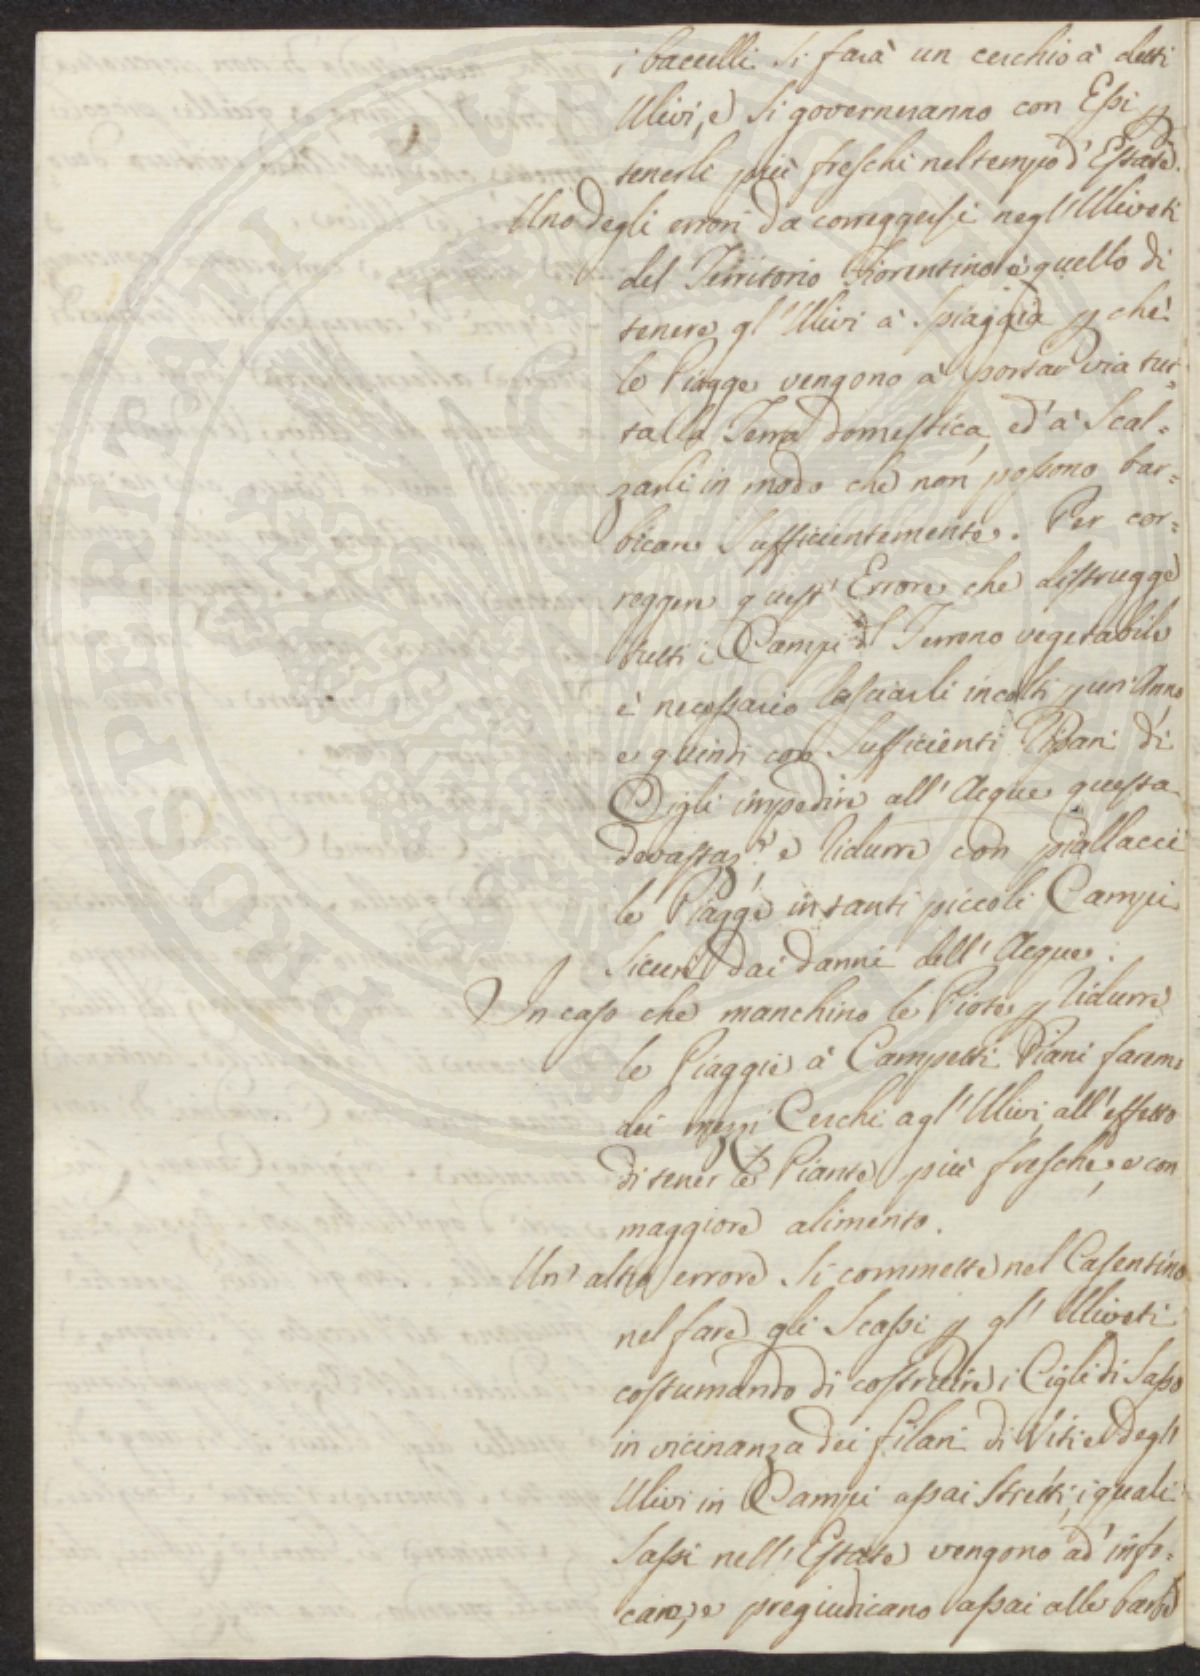 i baccelli si farà un cerchio à detti
Ulivi, e si governeranno con Essi p
tenerli più freschi nel tempo d'Estate.
Uno degli errori da correggersi negl'Uliveti
del Territorio Fiorentino è quello di
tenere gl'Ulivi à Spiaggia p chè
le Piagge vengono à portar via tut=
ta la Terra domestica, ed'à Scal=
zarli in modo che non possono bar=
bicare Sufficientemente. Per cor=
reggere quest'Errore che distrugge
tutti i Campi di Terreno vegetabile
è necessario lasciarli incolti p un'Anno
e quindi con Sufficienti Ripari di
Cigli impedire all'Acque questa
devastaz.e, e ridurre con piallacci
le Piagge in tanti piccoli Campi
sicuri dai danni dell'Acque.
In caso che manchino le Piote p ridurre
le Piaggie à Campetti Piani faremo
dei mezzi Cerchi agl'Ulivi, all'effetto
di tener le Piante più fresche, e con
maggiore alimento.
Un'altro errore si commette nel Casentino
nel fare gli Scassi p gl'Uliveti
costumando di costruire i Cigli di Sasso
in vicinanza dei filari di Viti e degl'
Ulivi in Campi assai Stretti, i quali
Sassi nell'Estate vengono ad'info=
care, e pregiudicano assai alle barbe
PROSPERITATI PUBLICAE